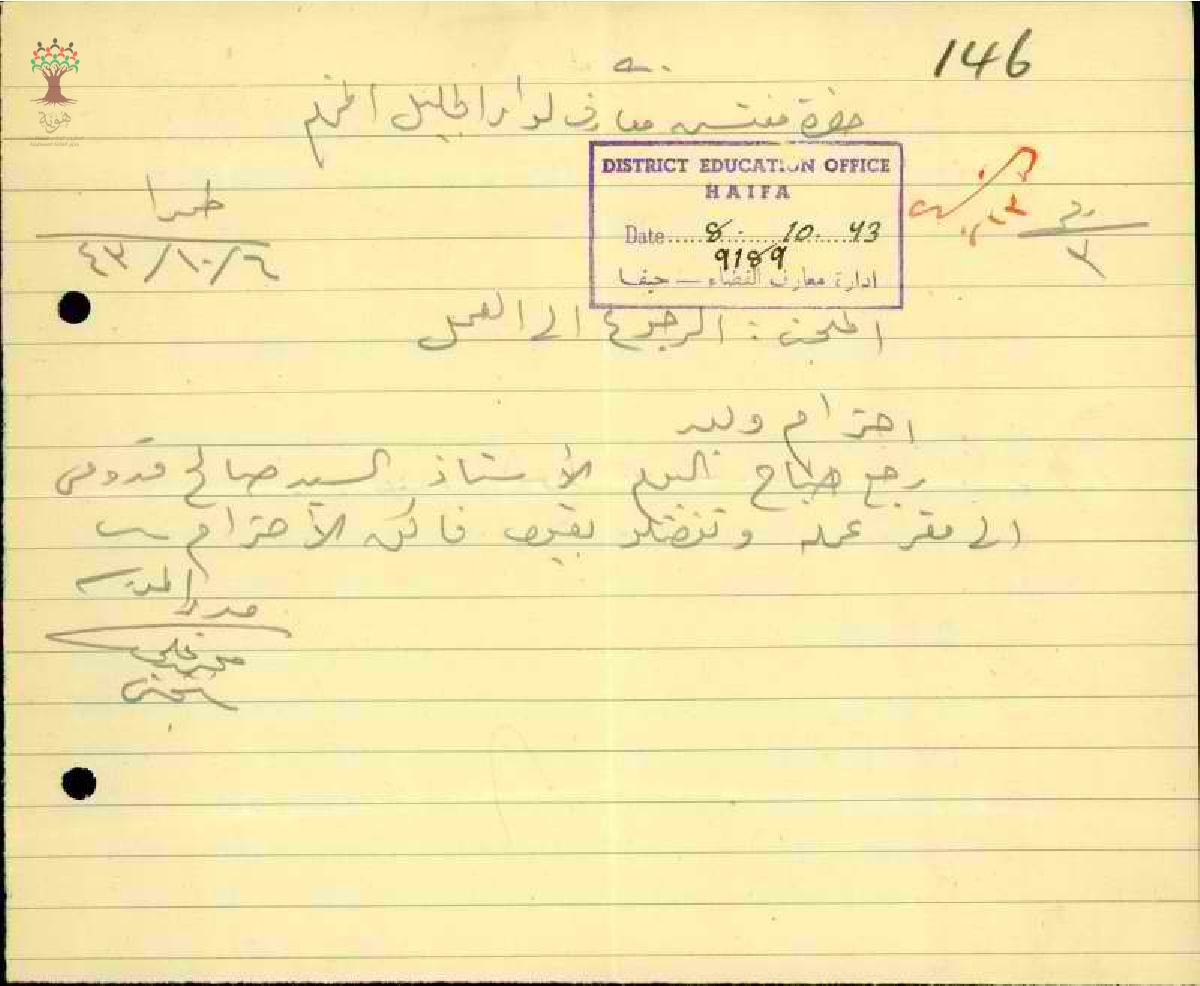 146
هوية
حضرة مفتش معارف لواء الجليل المحترم
DISTRICT EDUCATION OFFICE
HAIFA
Date..... 8. 10. 43
9189
ادارة معارف القضاء — حيفا
طمرا
٤٣/١٠/٦
٣
الرجوع الى العمل
احترام وبعد
رجع صباح اليوم الأستاذ السيد صالح قدومي
الى مقر عمله وتفضلو بقبول فائق الأحترام
مدير المدرسة